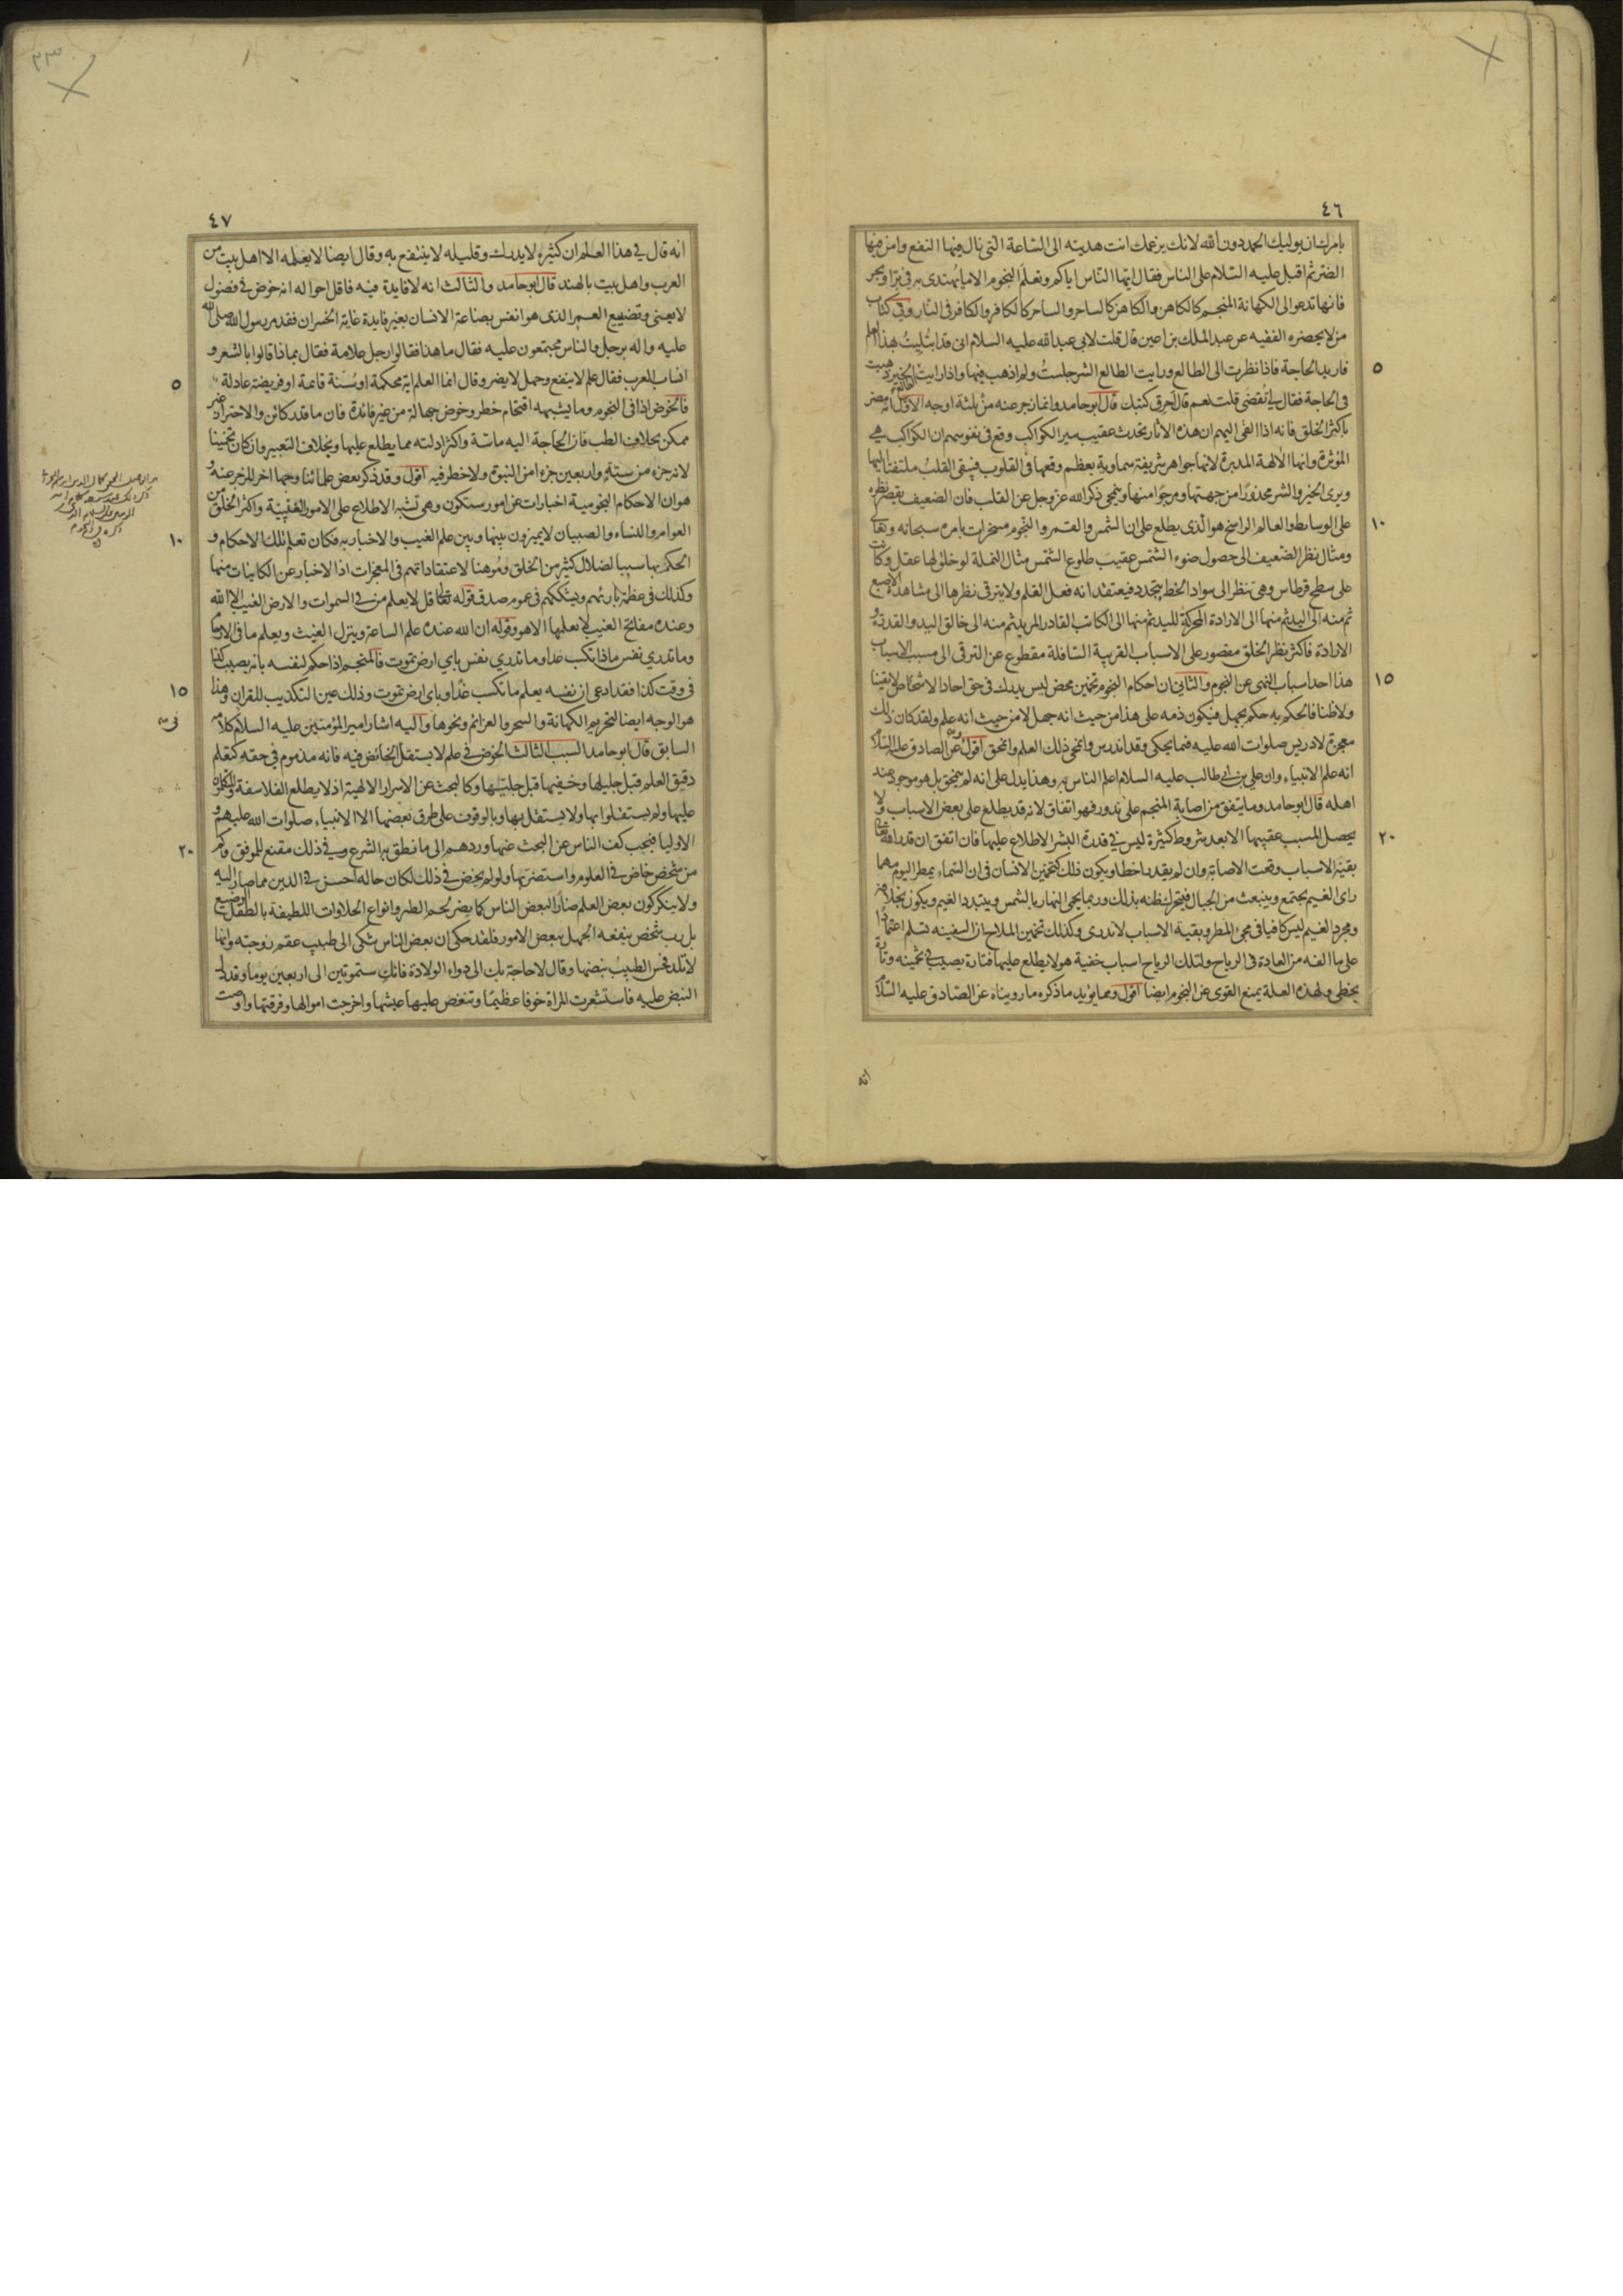 ٤٦
بامرك ان يوليك الحمد دون الله لانك بزعمك انت هديته الى الساعة التى نال فيها النفع وامن فيها
الضر ثم اقبل عليه السلام على الناس فقال ايها الناس اياكم وتعلم النجوم الا ما يهتدى به فى بر او بحر
فانها تدعو الى الكهانة المنجم كالكاهن والكاهن كالساحر والساحر كالكافر والكافر فى النار وفى كتاب
من لا يحضره الفقيه عن عبد الملك بن اعين قال قلت لابى عبد الله عليه السلام انى قد ابتليت بهذا العلم
٥
فاريد الحاجة فاذا نظرت الى الطالع ورايت الطالع الشر جلست ولم اذهب فيها واذا رايت الطالع الخير ذهبت
فى الحاجة فقال لى تقضى قلت نعم قال احرق كتبك قال ابو حامد وانما زجر عنه من ثلثة اوجه الاول انه مضر
باكثر الخلق فانه اذا القى اليهم ان هذه الاثار تحدث عقيب سير الكواكب وقع فى نفوسهم ان الكواكب هى
المؤثرة وانها الالهة المدبرة لانها جواهر شريفة سماوية يعظم وقعها فى القلوب فيبقى القلب ملتفتا اليها
ويرى الخير والشر محذورا من جهتها ومرجوا منها وينمحى ذكر الله عز وجل عن القلب فان الضعيف يقصر نظره
١٠
على الوسايط والعالم الراسخ هو الذى يطلع على ان الشمس والقمر والنجوم مسخرات بامره سبحانه وتعالى
ومثال نظر الضعيف الى حصول ضوء الشمس عقيب طلوع الشمس مثال النملة لو خلق لها عقل وكانت
على سطح قرطاس وهى تنظر الى سواد الخط يتجدد فيعتقد انه فعل القلم ولا يترقى نظرها الى مشاهدة الاصبع
ثم منه الى اليد ثم منها الى الارادة المحركة لليد ثم منها الى الكاتب القادر المريد ثم منه الى خالق اليد والقدرة و
الارادة فاكثر نظر الخلق مقصور على الاسباب القريبة السافلة مقطوع عن الترقى الى مسبب الاسباب
١٥
هذا احد اسباب النهى عن النجوم والثانى ان احكام النجوم تخمين محض ليس يدرك فى حق احاد الاشخاص لا يقينا
ولا ظنا فالحكم به حكم بجهل فيكون ذمه على هذا من حيث انه جهل لا من حيث انه علم ولقد كان ذلك
معجزة لادريس صلوات الله عليه فيما يحكى وقد اندرس وانمحى ذلك العلم وانمحق اقول عن الصادق عليه السلام
انه علم الانبياء وان على بن ابى طالب عليه السلام اعلم الناس به وهذا يدل على انه لم ينمحق بل هو موجود عند
اهله قال ابو حامد وما يتفق من اصابة المنجم على ندور فهو اتفاق لانه قد يطلع على بعض الاسباب ولا
٢٠
يحصل المسبب عقيبها الا بعد شروط كثيرة ليس فى قدرة البشر الاطلاع عليها فان اتفق ان قدر الله تعالى
بقية الاسباب وقعت الاصابة وان لم يقدر اخطا ويكون ذلك كتخمين الانسان فى ان السماء يمطر اليوم مهما
راى الغيم يجتمع وينبعث من الجبال فيتحرك ظنه بذلك وربما يحمى النهار بالشمس ويتبدد الغيم ويكون بخلافه
ومجرد الغيم ليس كافيا فى مجئ المطر وبقية الاسباب لا تدرى وكذلك تخمين الملاح ان السفينه تسلم اعتمادا
على ما الفه من العادة فى الرياح ولتلك الرياح اسباب خفية هو لا يطلع عليها فتارة يصيب فى تخمينه وتارة
يخطى ولهذه العلة يمنع القوى عن النجوم ايضا اقول ومما يؤيد ما ذكره ما رويناه عن الصادق عليه السلام
انه
٤٧
انه قال فى هذا العلم ان كثيره لا يدرك وقليله لا ينتفع به وقال ايضا لا يعلمه الا اهل بيت من
العرب واهل بيت بالهند قال ابو حامد والثالث انه لا فايدة فيه فاقل احواله انه خوض فى فضول
لا يعنى وتضييع العمر الذى هو انفس بضاعة الانسان بغير فايدة غاية الخسران فقد مر رسول الله صلى الله
عليه واله برجل والناس مجتمعون عليه فقال ما هذا فقالوا رجل علامة فقال بماذا قالوا بالشعر و
٥
انساب العرب فقال علم لا ينفع وجهل لا يضر وقال انما العلم اية محكمة او سنة قائمة او فريضة عادلة
فالخوض اذا فى النجوم وما يشبهه اقتحام خطر وخوض جهالة من غير فائدة فان ما قدر كائن والاحتراز غير
ممكن بخلاف الطب فان الحاجة اليه ماسة واكثر ادلته مما يطلع عليها وبخلاف التعبير وان كان تخمينا
لانه جزء من ستة واربعين جزءا من النبوة ولا خطر فيه اقول وقد ذكر بعض علمائنا وجها اخر للزجر عنه و
هو ان الاحكام النجومية اخبارات عن امور ستكون وهى تشبه الاطلاع على الامور الغيبية واكثر الخلق من
١٠
العوام والنساء والصبيان لا يميزون بينها وبين علم الغيب والاخبار به فكان تعلم تلك الاحكام و
الحكم بها سببا لضلال كثير من الخلق وموهنا لاعتقاداتهم فى المعجزات اذ الاخبار عن الكاينات منها
وكذلك فى عظمة بارئهم ويشككهم فى عموم صدق قوله تعالى قل لا يعلم من فى السموات والارض الغيب الا الله
وعنده مفاتح الغيب لا يعلمها الا هو وقوله ان الله عنده علم الساعة وينزل الغيث ويعلم ما فى الارحام
وما تدرى نفس ماذا تكسب غدا وما تدرى نفس باى ارض تموت فالمنجم اذا حكم لنفسه بانه يصيب كذا
١٥
فى وقت كذا فقد ادعى ان نفسه يعلم ما تكسب غدا وباى ارض تموت وذلك عين التكذيب للقران وهذا
هو الوجه ايضا لتحريم الكهانة والسحر والعزائم ونحوها واليه اشار امير المؤمنين عليه السلام كلامه
السابق قال ابو حامد السبب الثالث الخوض فى علم لا يستقل الخائض فيه فانه مذموم فى حقه كتعلم
دقيق العلم قبل جليلها وخفيها قبل جليتها وكالبحث عن الاسرار الالهية اذ لا يطلع الفلاسفة والمتكلمون
عليها ولم يستقلوا بها ولا يستقل بها وبالوقوف على طرق بعضها الا الانبياء صلوات الله عليهم و
٢٠
الاوليا فيجب كف الناس عن البحث عنها وردهم الى ما نطق به الشرع وفى ذلك مقنع للموفق وكم
من شخص خاض فى العلوم واستضر بها ولو لم يخض فى ذلك لكان حاله احسن فى الدين مما صار اليه
ولا ينكر كون بعض العلم ضارا لبعض الناس كما يضر لحم الطير وانواع الحلاوات اللطيفة بالطفل الرضيع
بل رب شخص ينفعه الجهل ببعض الامور فلقد حكى ان بعض الناس شكى الى طبيب عقم زوجته وانها
لا تلد فجس الطبيب نبضها وقال لا حاجة بك الى دواء الولادة فانك ستموتين الى اربعين يوما وقد دل
النبض عليه فاستشعرت المراة خوفا عظيما وتنغص عليها عيشها واخرجت اموالها وفرقتها واوصت